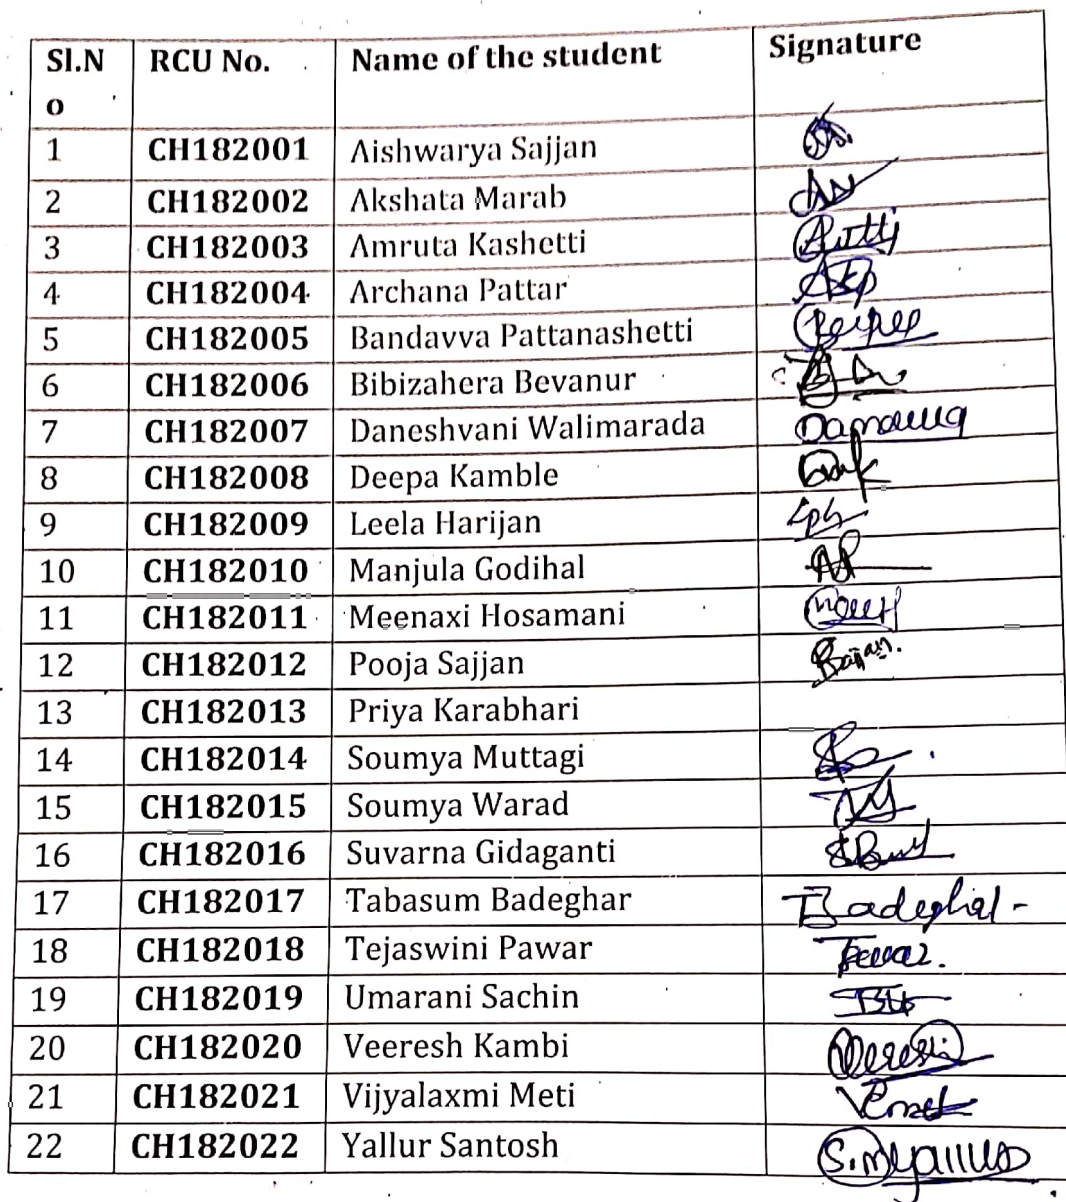 Sl.No RCU No. Name of the student Signature
1 CH182001 Aishwarya Sajjan
2 CH182002 Akshata Marab
3 CH182003 Amruta Kashetti
4 CH182004 Archana Pattar
5 CH182005 Bandavva Pattanashetti
6 CH182006 Bibizahera Bevanur
7 CH182007 Daneshvani Walimarada
8 CH182008 Deepa Kamble
9 CH182009 Leela Harijan
10 CH182010 Manjula Godihal
11 CH182011 Meenaxi Hosamani
12 CH182012 Pooja Sajjan
13 CH182013 Priya Karabhari
14 CH182014 Soumya Muttagi
15 CH182015 Soumya Warad
16 CH182016 Suvarna Gidaganti
17 CH182017 Tabasum Badeghar
18 CH182018 Tejaswini Pawar
19 CH182019 Umarani Sachin
20 CH182020 Veeresh Kambi
21 CH182021 Vijyalaxmi Meti
22 CH182022 Yallur Santosh